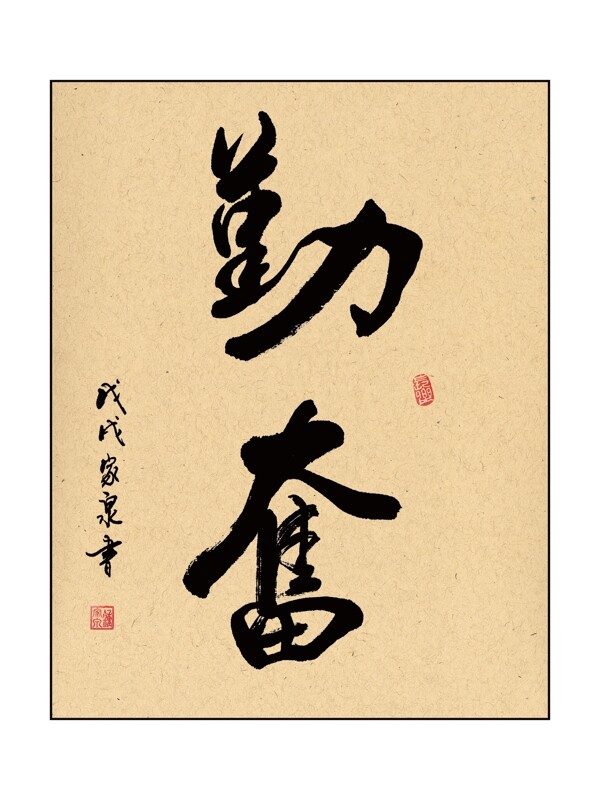 勤奮
戊戌家泉書